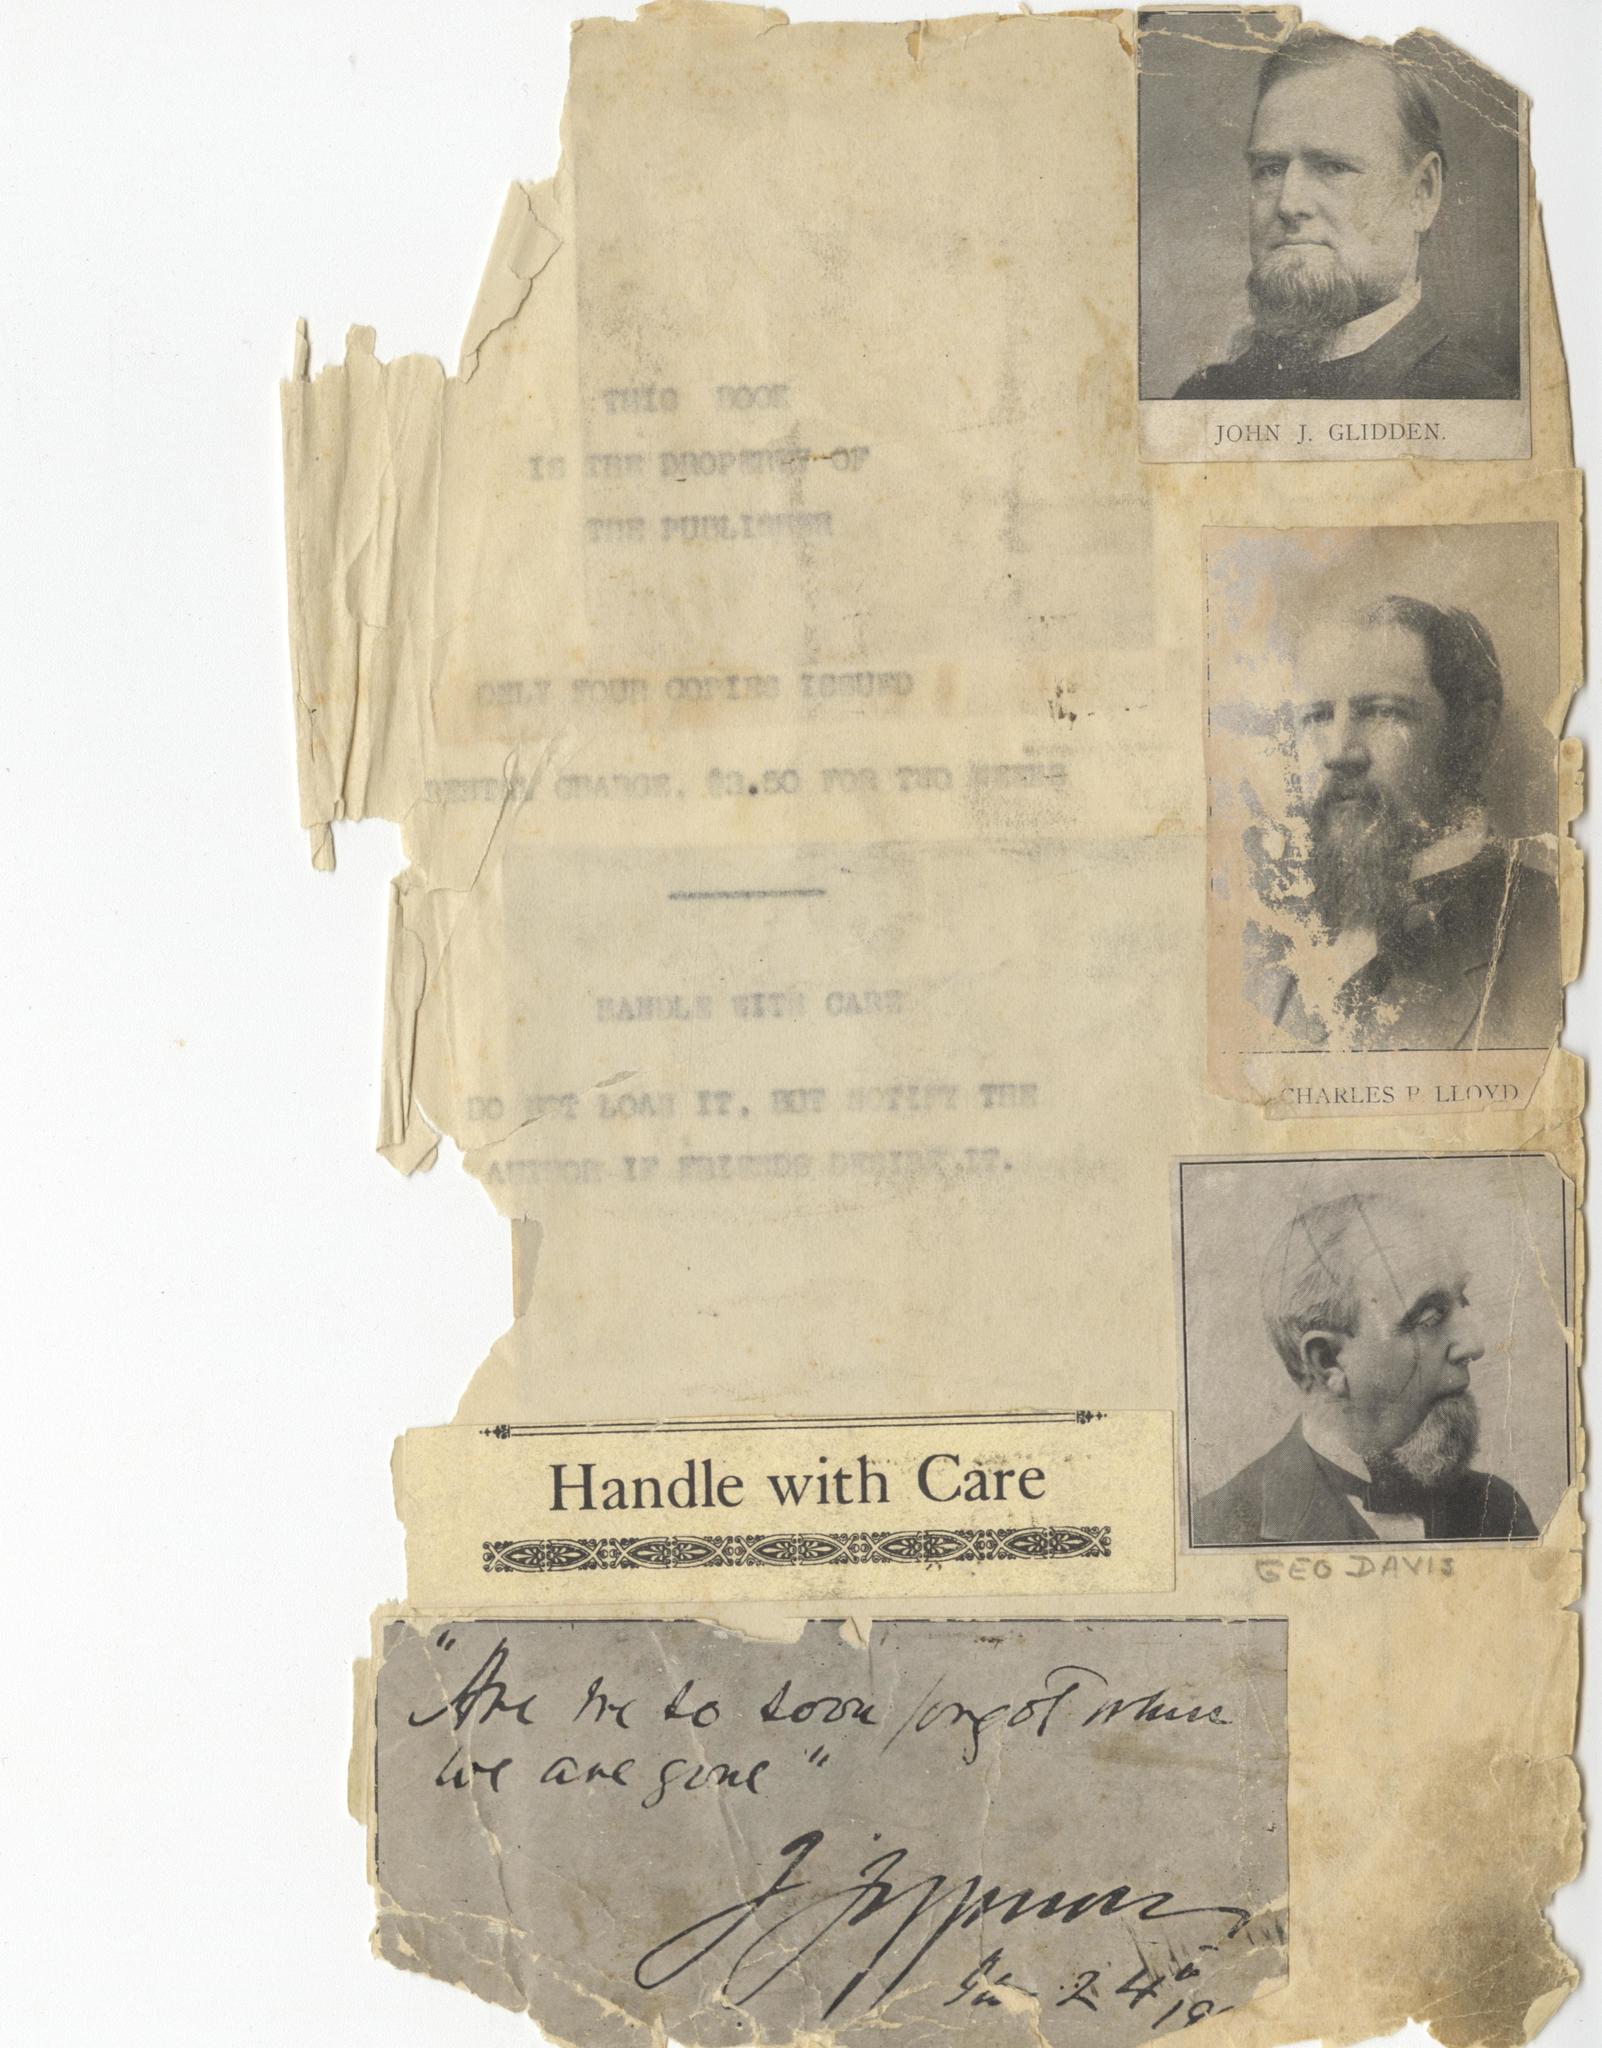 THIS BOOK
IS THE PROPERTY OF
THE PUBLISHER
ONLY FOUR COPIES ISSUED
RENTAL CHARGE. $2.50 FOR TWO WEEKS
HANDLE WITH CARE
DO NOT LOAN IT, BUT NOTIFY THE
AUTHOR IF FRIENDS DESIRE IT.
JOHN J. GLIDDEN.
CHARLES P. LLOYD
GEO DAVIS
Handle with Care
"Are we so soon forgot when
we are gone"
J Jefferson
24 19